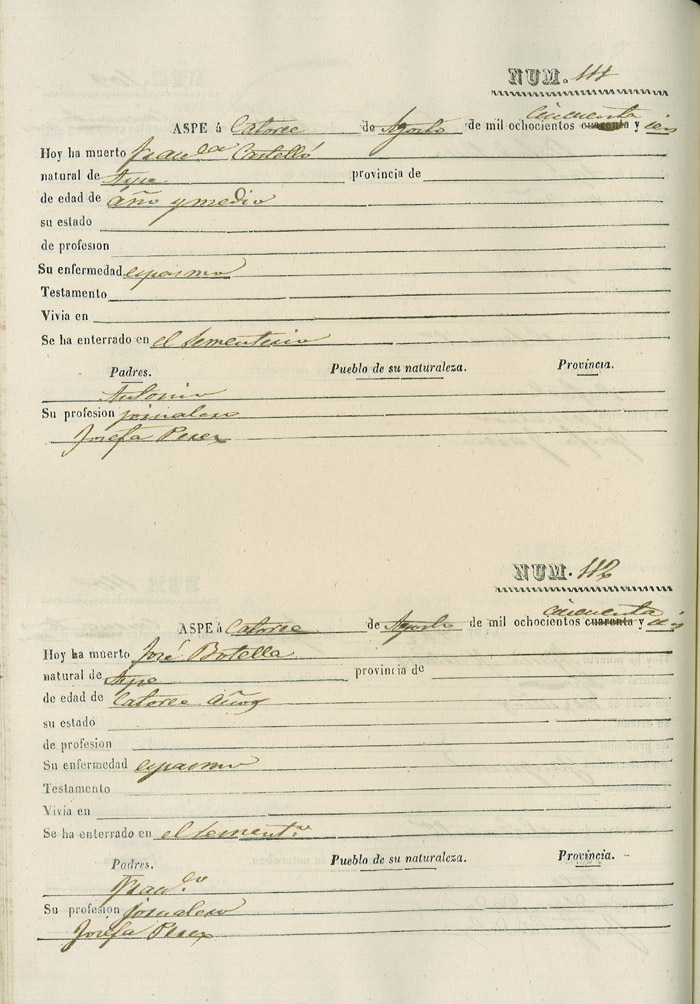 NUM. 111
cincuenta
ASPE á Catorce de Agosto de mil ochocientos cuarenta y seis
Hoy ha muerto Fran.ca Castelló
natural de Aspe provincia de
de edad de año y medio
su estado
de profesion
Su enfermedad espasmo
Testamento
Vivia en
Se ha enterrado en el sementerio
Padres. Pueblo de su naturaleza. Provincia.
Antonio
Su profesion jornalero
Josefa Perez
NUM. 112
cincuenta
ASPE á Catorce de Agosto de mil ochocientos cuarenta y seis
Hoy ha muerto José Botella
natural de Aspe provincia de
de edad de Catorce años
su estado
de profesion
Su enfermedad espasmo
Testamento
Vivia en
Se ha enterrado en el sement.o
Padres. Pueblo de su naturaleza. Provincia.
Fran.co
Su profesion jornalero
Josefa Perez